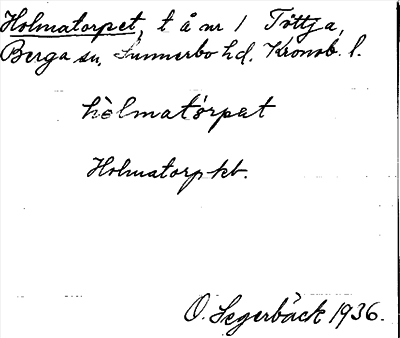 Holmatorpet, t å nr 1 Töttja,
Berga sn, Sunnerbo hd, Kronob. l.
hèlmatórpat
Holmatorp kt.
O. Segerbäck 1936.